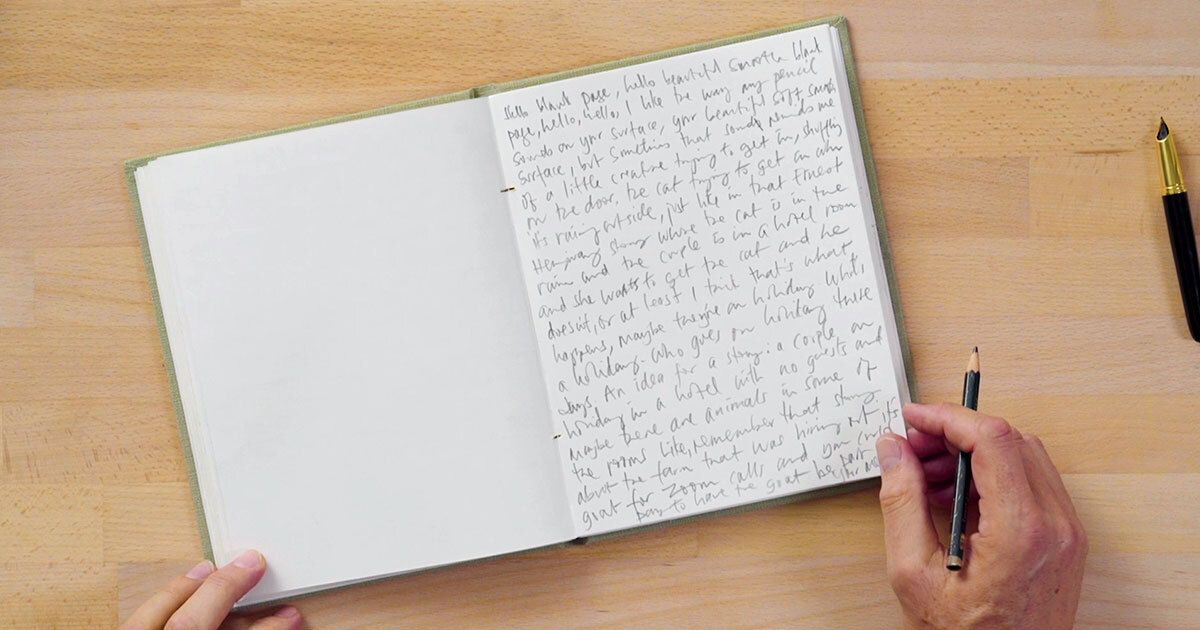 Hello blank page, hello beautiful smooth blank
page, hello, hello, I like the way my pencil
sounds on your surface, your beautiful soft smooth
surface, but something that sounds reminds me
of a little creature trying to get in, shuffling
on the door, the cat trying to get in when
it's raining outside, just like in that Ernest
Hemingway story where the cat is in the
rain and the couple is in a hotel room
and she wants to get the cat and he
doesn't, or at least I think that's what
happens, maybe they're on holiday. What,
a holiday. Who goes on holiday these
days. An idea for a story: a couple on
holiday in a hotel with no guests and
maybe there are animals in some of
the rooms. Like, remember that story
about the farm that was hiring out its
goat for Zoom calls and you could
pay to have the goat be part